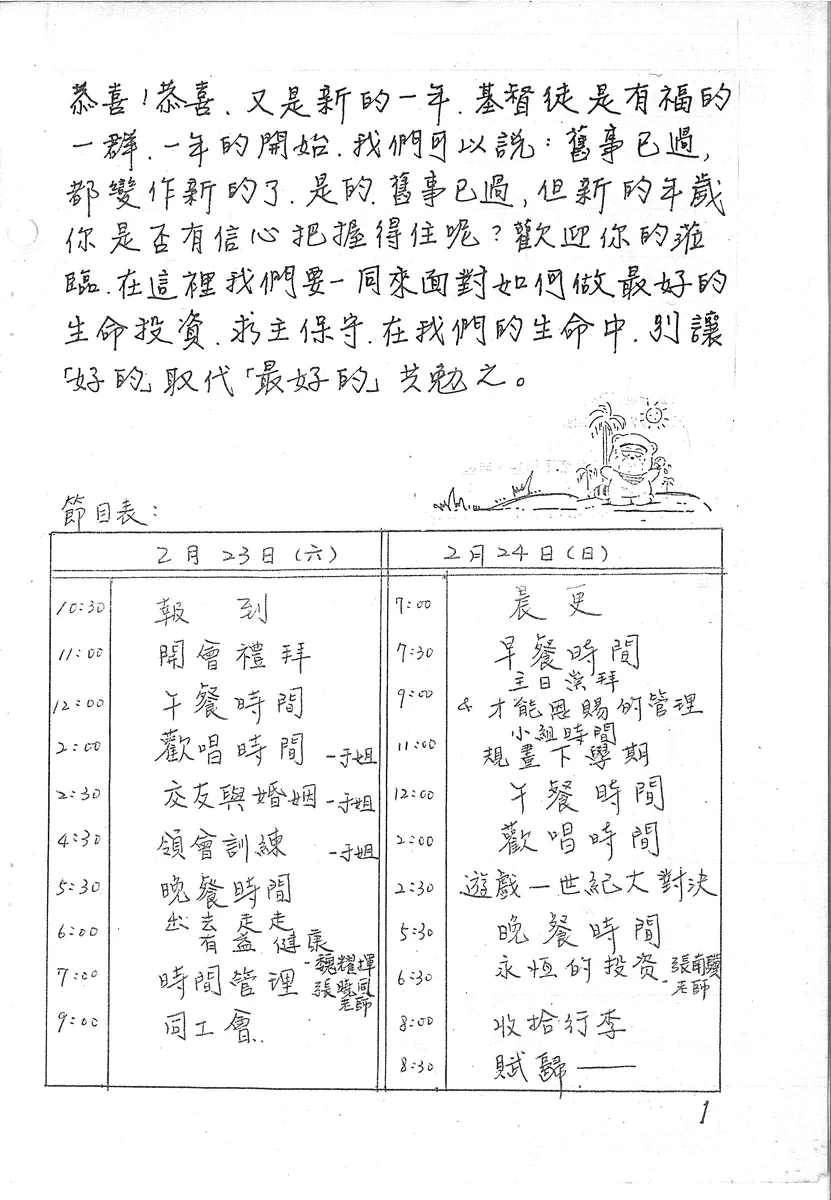 恭喜!恭喜.又是新的一年.基督徒是有福的
一群.一年的開始.我們可以說:舊事已過,
都變作新的了.是的.舊事已過,但新的年歲
你是否有信心把握得住呢?歡迎你的蒞
臨.在這裡我們要一同來面對如何做最好的
生命投資.求主保守.在我們的生命中.別讓
「好的」取代「最好的」共勉之。
節目表:
2月23日(六)
10:30 報到
11:00 開會禮拜
12:00 午餐時間
2:00 歡唱時間 -于姐
2:30 交友與婚姻 -于姐
4:30 領會訓練 -于姐
5:30 晚餐時間
6:00 出去走走
有益健康
7:00 時間管理 -魏耀揮
張曉風
老師
9:00 同工會.
2月24日(日)
7:00 晨更
7:30 早餐時間
9:00 主日崇拜
& 才能恩賜的管理
11:00 小組時間
規畫下學期
12:00 午餐時間
2:00 歡唱時間
2:30 遊戲-世紀大對決
5:30 晚餐時間
6:30 永恆的投資 -張南驥
老師
8:00 收拾行李
8:30 賦歸——
1